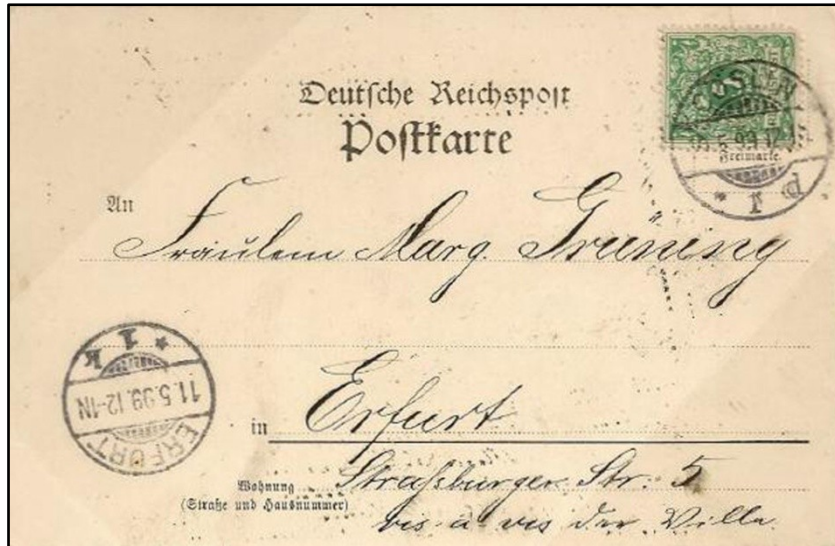 Deutsche Reichspost
Postkarte
CÖSLIN
Freimarke
* 1 d
An
Fräulein Marg. Grüning
* 1 k
11.5.99.12-1N
ERFURT
in Erfurt
Wohnung
(Straße und Hausnummer)
Straßburger Str: 5
vis a vis der Villa